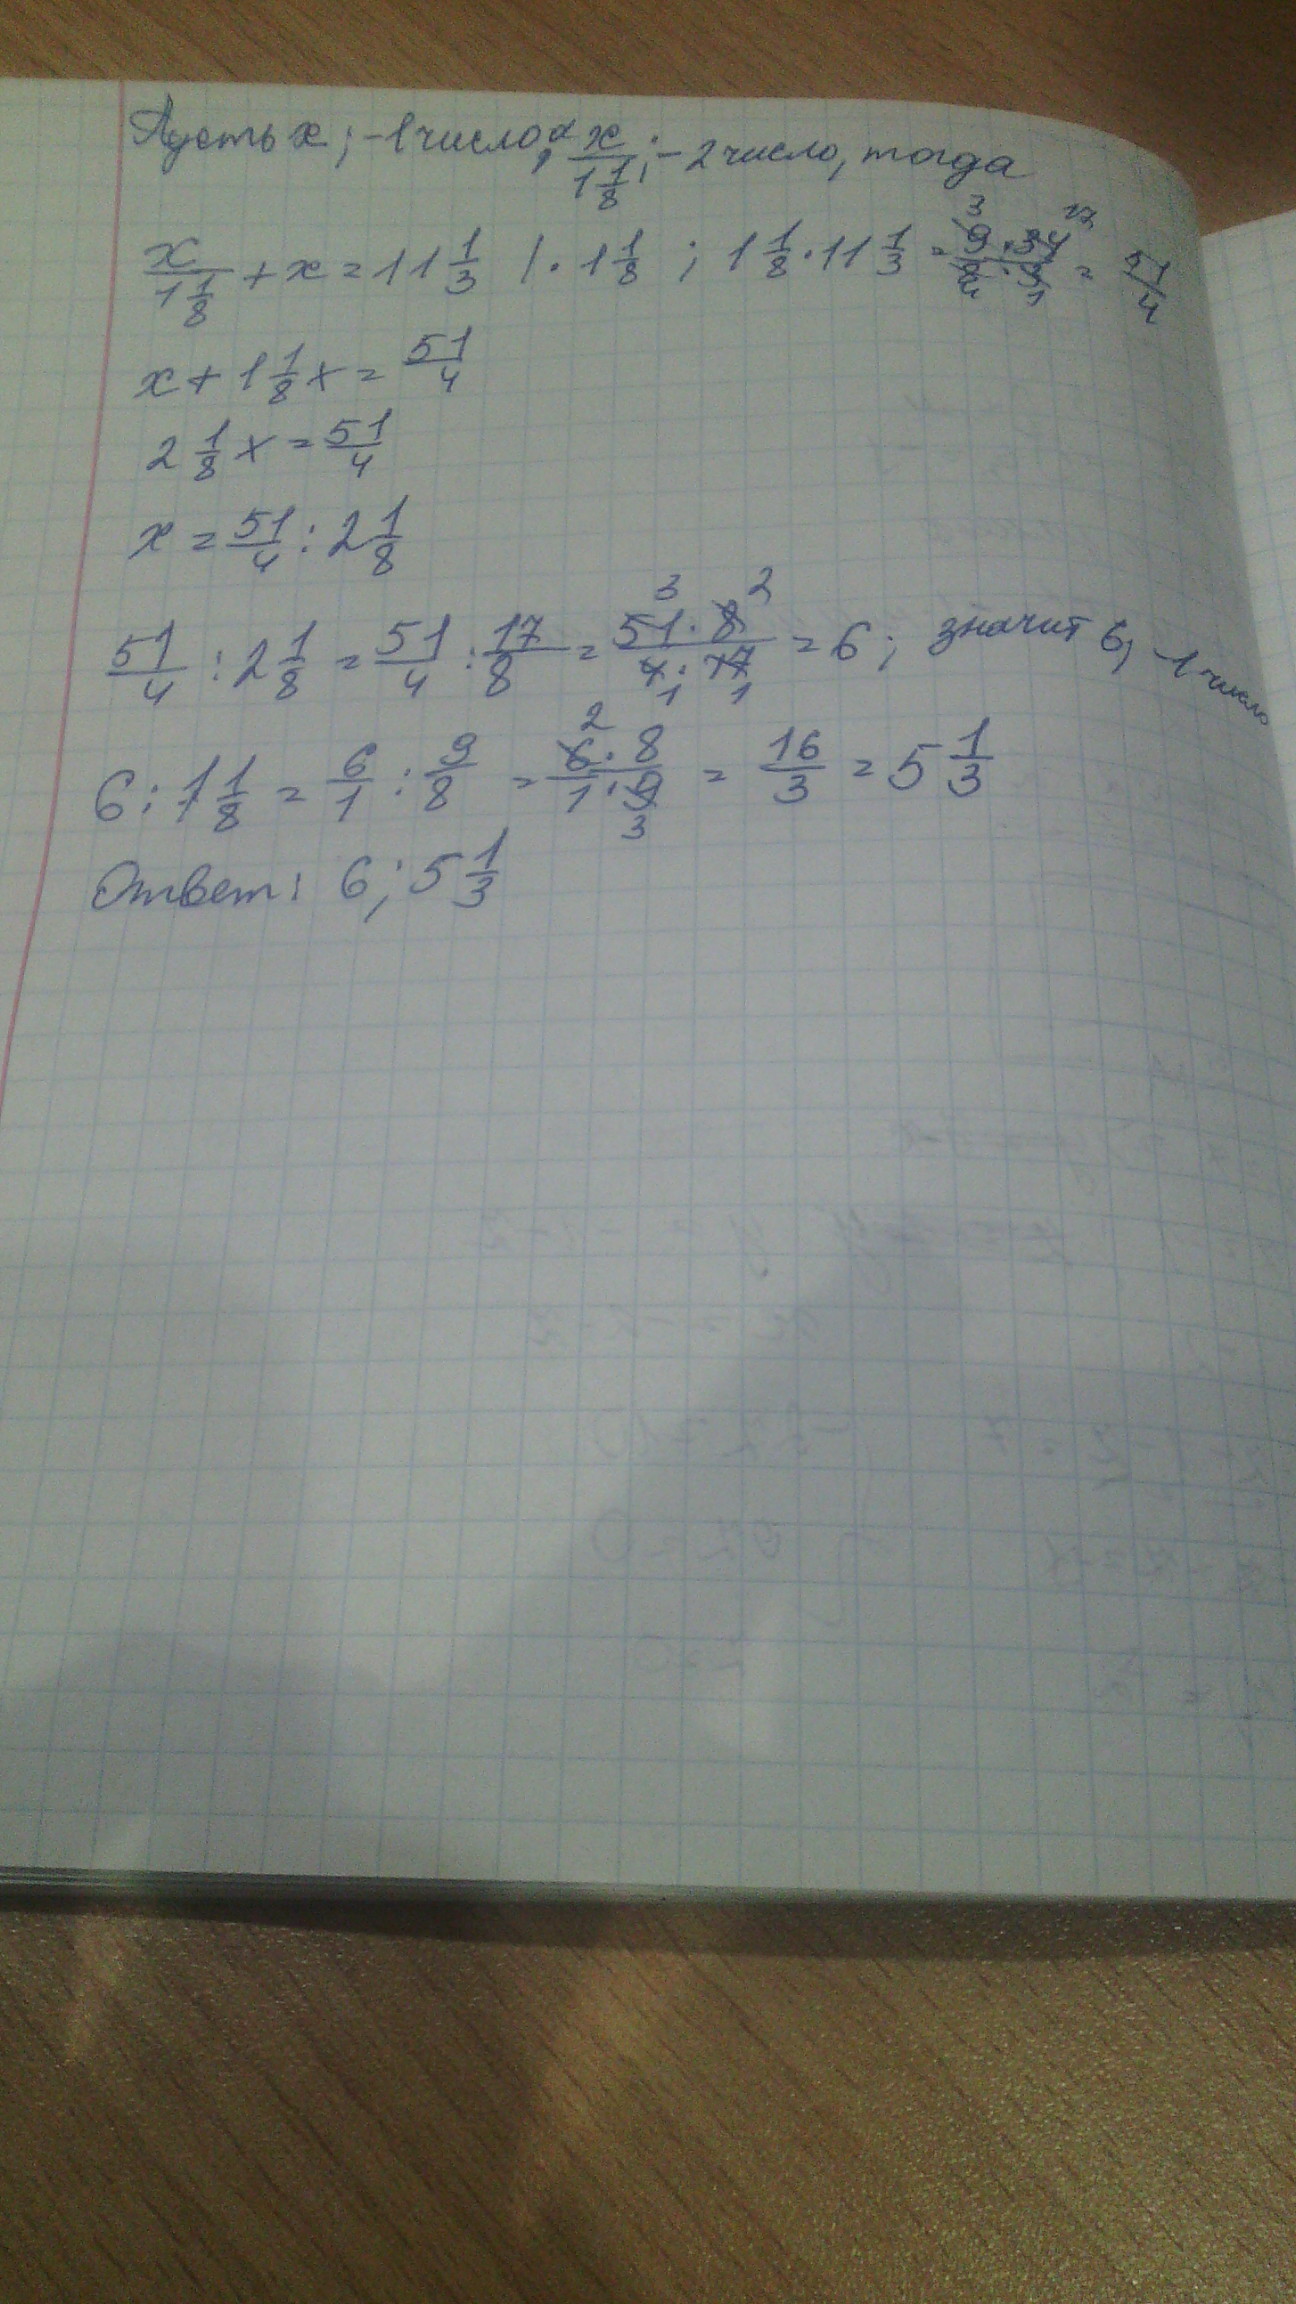 Пусть x; - 1 число, а x/1 1/8; - 2 число, тогда
x/1 1/8 + x = 11 1/3 | · 1 1/8 ; 1 1/8 · 11 1/3 = 9 · 34/8 · 3 = 51/4
x + 1 1/8 x = 51/4
2 1/8 x = 51/4
x = 51/4 : 2 1/8
51/4 : 2 1/8 = 51/4 : 17/8 = 51 · 8/4 · 17 = 6 ; значит 6; - 1 число
6 : 1 1/8 = 6/1 : 9/8 = 6 · 8/1 · 9 = 16/3 = 5 1/3
Ответ: 6; 5 1/3